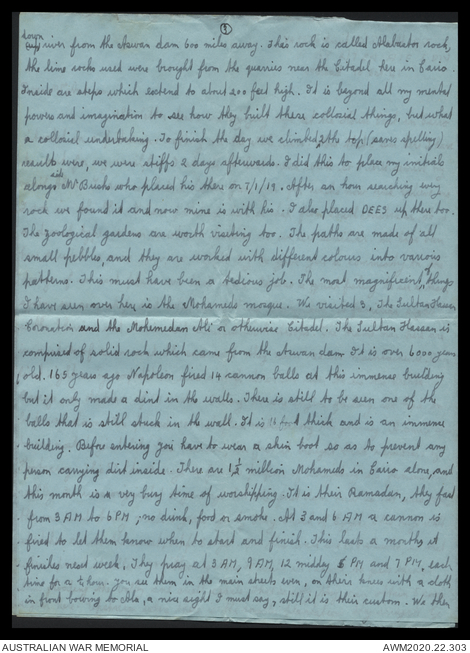 ③
down
river from the Aswan dam 600 miles away. This rock is called Alabastor rock,
the lime rocks used were brought from the quarries near the Citadel here in Cairo.
Inside are steps which extend to about 200 feet high. It is beyond all my mental
powers and imagination to see how they built there collosial things, but what
a collosial undertaking. To finish the day we climbed 2 the top (saves spelling)
results were, we were stiffs 2 days afterwards. I did this to place my initials
alongside Mr Bush who placed his there on 7/1/19. After an hour searching every
rock we found it and now mine is with his. I also placed DEES up there too.
The Zoological gardens are worth visiting too. The paths are made of all
small pebbles, and they are worked with different colours into various
patterns. This must have been a tedious job. The most magnificient of things
I have seen over here is the Mohameds mosque. We visited 3, The Sultan Hassan
and the Mohemedan Ali or otherwise Citadel. The Sultan Hassan is
comprised of solid rock which came from the Aswan dam It is over 6000 years
old. 165 years ago Napoleon fired 14 cannon balls at this immense building
but it only made a dint in the walls. There is still to be seen one of the
balls that is still stuck in the wall. It is 16 foot thick and is an immense
building. Before entering you have to wear a skin boot so as to prevent any
person carrying dirt inside. There are 1½ million Mohameds in Cairo alone, and
this month is a very busy time of worshipping. It is their Ramadan, they fast
from 3 AM to 6 PM, no drink, food or smoke. At 3 and 6 AM a cannon is
fired to let them know when to start and finish. This lasts a month & it
finishes next week. They pray at 3 AM, 9 AM, 12 midday 5 PM and 7 PM, each
time for a ½ hour. you see them in the main streets even, on their knees with a cloth
in front bowing to Alla, a nice sight I must say, still it is their custom. We then
AUSTRALIAN WAR MEMORIAL
AWM2020.22.303